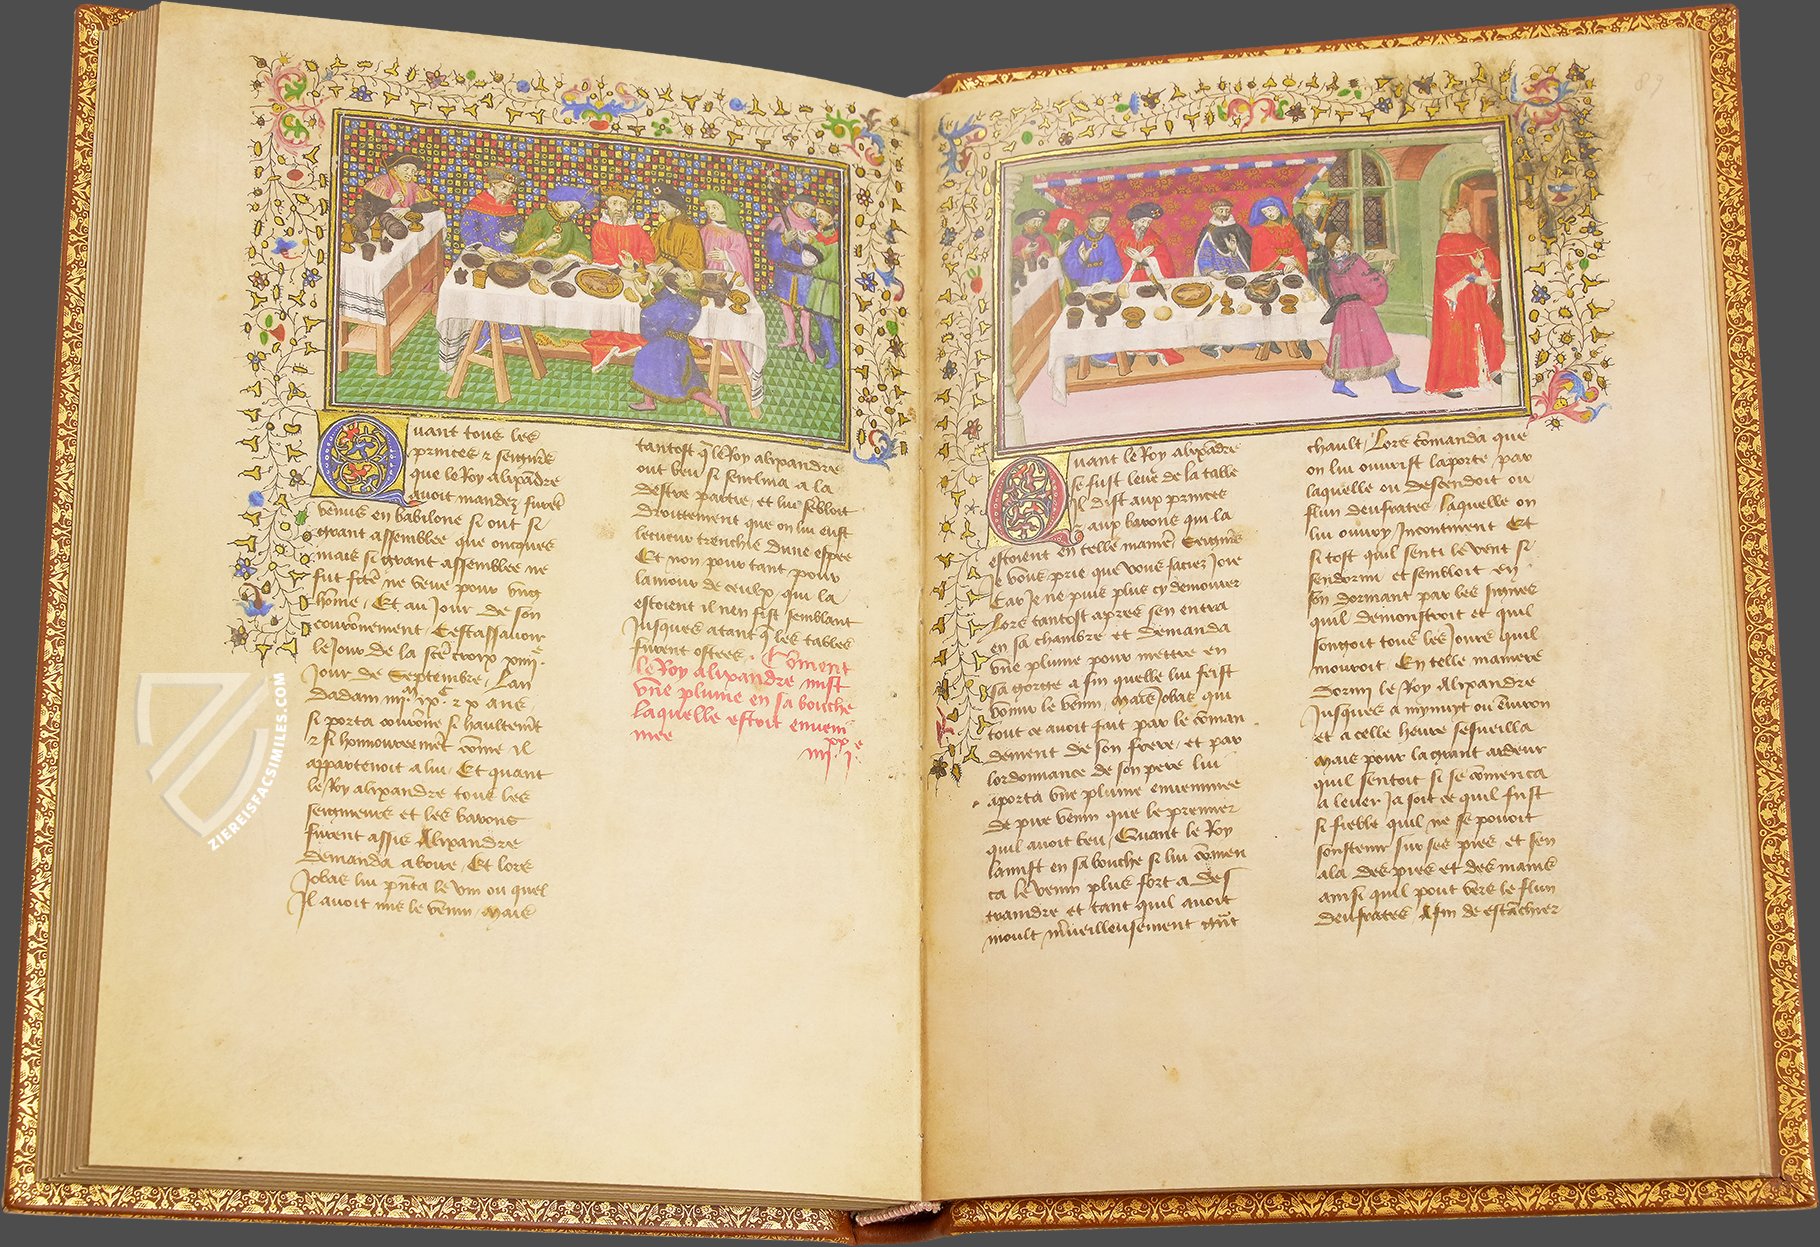 Quant tous les
princes & seigners
que le Roy alixādre
auoit mandez furēt
venus en babilone si ont si
grant assemblee que oncques
mais si grant assemblee ne
fut fcē ne veue pour vng
hōme / Et au Jour de son
couronement / Cestassauoir
le Jour de la scē croix xiiij.e
Jour de Septembre / Lan
dadam iiij.m ix.c & x ans
si porta courōne si haultemēt
& si honnoureemēt cōme il
appartenoit a lui / Et quant
le Roy alixandre tous les
seigneurs et les barons
furent assis Alixandre
demanda a boire / Et lors
Jobas lui pn̄ta le vin ou quel
Il auoit mis le venin / Mais
tantost q̄ le Roy alixandre
out beu si senclina a la
destre partie / et lui sēbloit
droittement que on lui eust
le cueur trenchie dune espee
Et non pour tant pour
lamour de ceulx qui la
estoient il nen fist semblant
Jusques atant q̄ les tables
furent ostees . Cōment
le Roy alixandre mist
vne plume en sa bouche
laquelle estoit enveni
mee
iiij.xx j.e
89
Quant le Roy alixādre
se fust leue de la table
Il dist aux princes
& aux barons qui la
estoient en telle manier̄ / Seigneˢ
Je vous prie que vous faciez Joie
Car Je ne puis plus cy demourer
Lors tantost apres sen entra
en sa chambre et demanda
vne plume pour mettre en
sa gorge a fin quelle lui feist
vomir le venin / Mais Jobas qui
tout ce auoit fait par le cōman
dement de son frere / et par
lordonnance de son pere lui
aporta vne plume enuenimee
de pire venin que le premier
quil auoit beu / Quant le Roy
la mist en sa bouche si lui cōmen
ca le venin plus fort a des
traindre et tant quil auoit
moult merueilleusement
chault / Lors cōmanda que
on lui ouurist la porte / par
laquelle ou descendoit ou
flun deufrates / laquelle on
lui ouury Incontinent Et
si tost quil senti le vent si
sendormi et sembloit en
son dormant par les signes
quil demonstroit et quil
songoit tous les Jours quil
mouroit / En telle maniere
dormi le Roy Alixandre
Jusques a mynuyt ou enuiron
et a celle heure sesueilla
Mais pour la grant ardeur
quil sentoit si se cōmenca
a leuer Ja soit ce quil fust
si fieble quil ne se pouoit
soustenir sur ses pies / et sen
ala des pies et des mains
ainsi quil pout vers le flun
deufrates / Afin de estanchier
ZIEREISFACSIMILES.COM